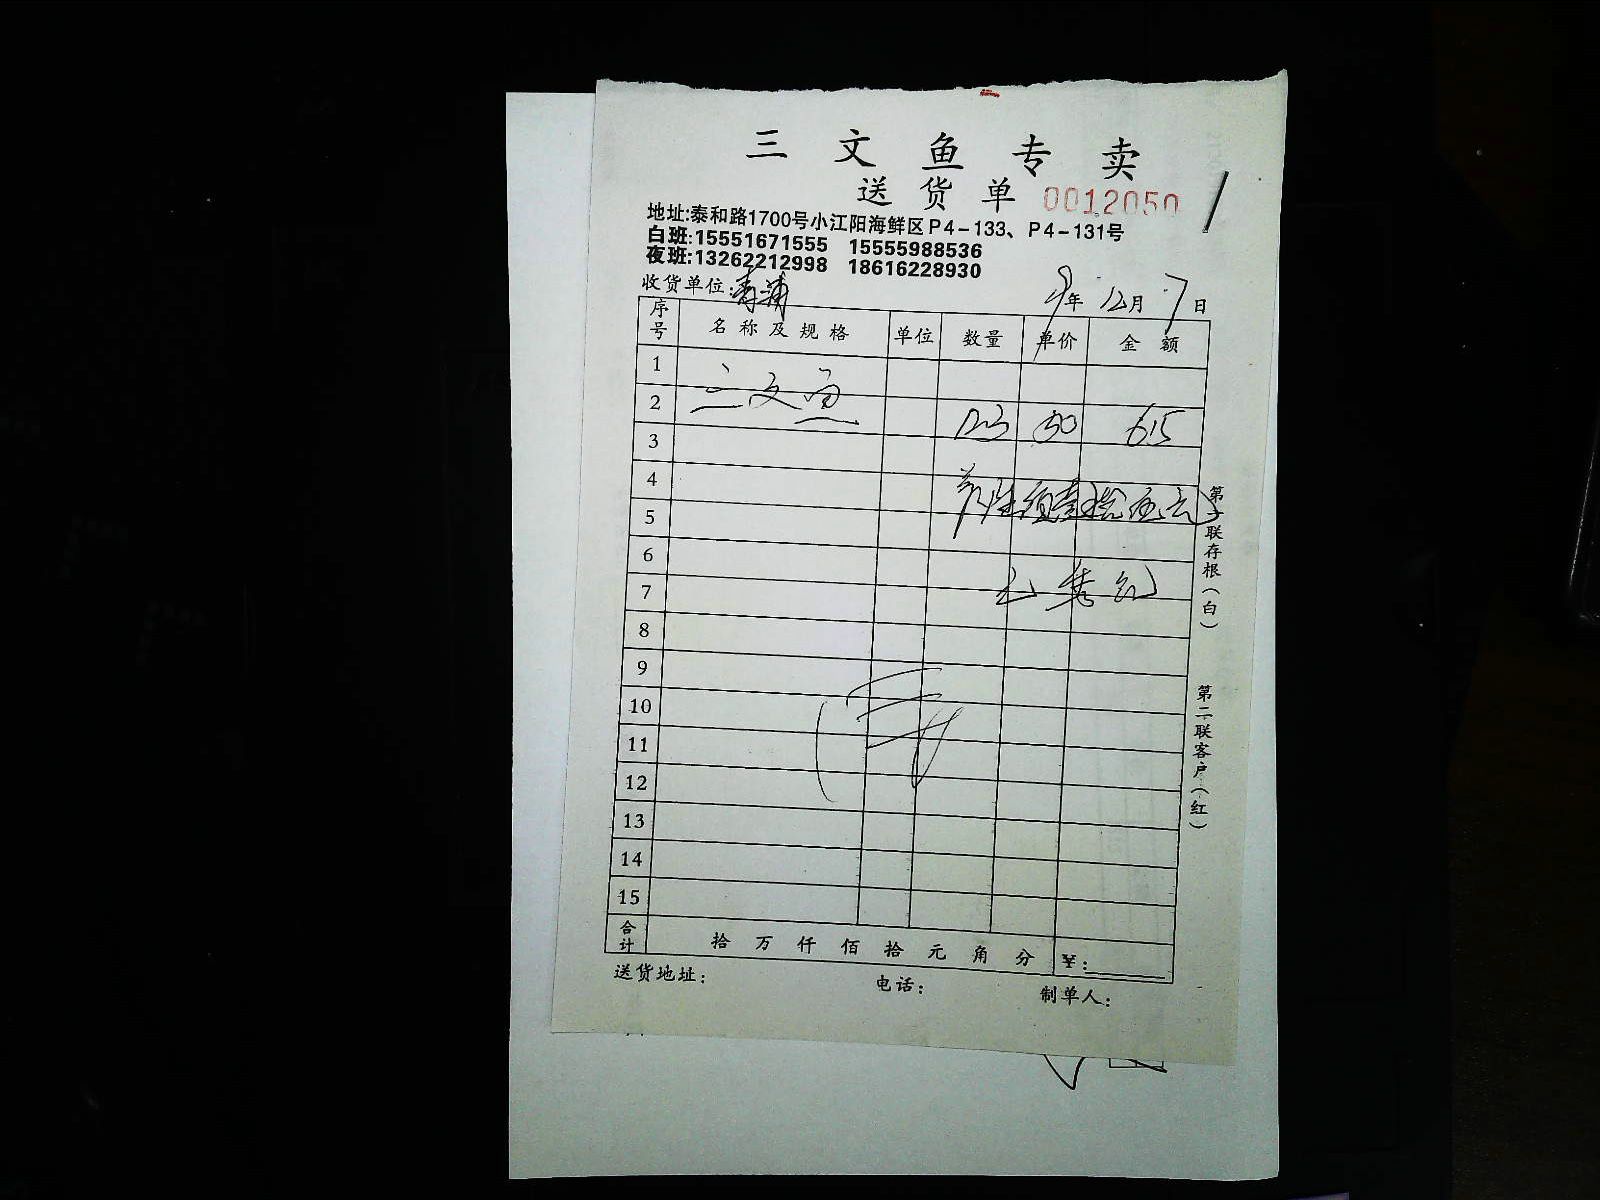 三文鱼专卖
送货单 0012050
地址:泰和路1700号小江阳海鲜区P4-133、P4-131号
白班:15551671555 15555988536
夜班:13262212998 18616228930
收货单位:青浦 9年12月7日
序号 名称及规格 单位 数量 单价 金额
1
2 三文鱼 50 615
3
4
5
6
7
8
9
10
11
12
13
14
15
合计 拾万仟佰拾元角分 ¥:
送货地址: 电话: 制单人:
联存根(白)
第二联客户(红)